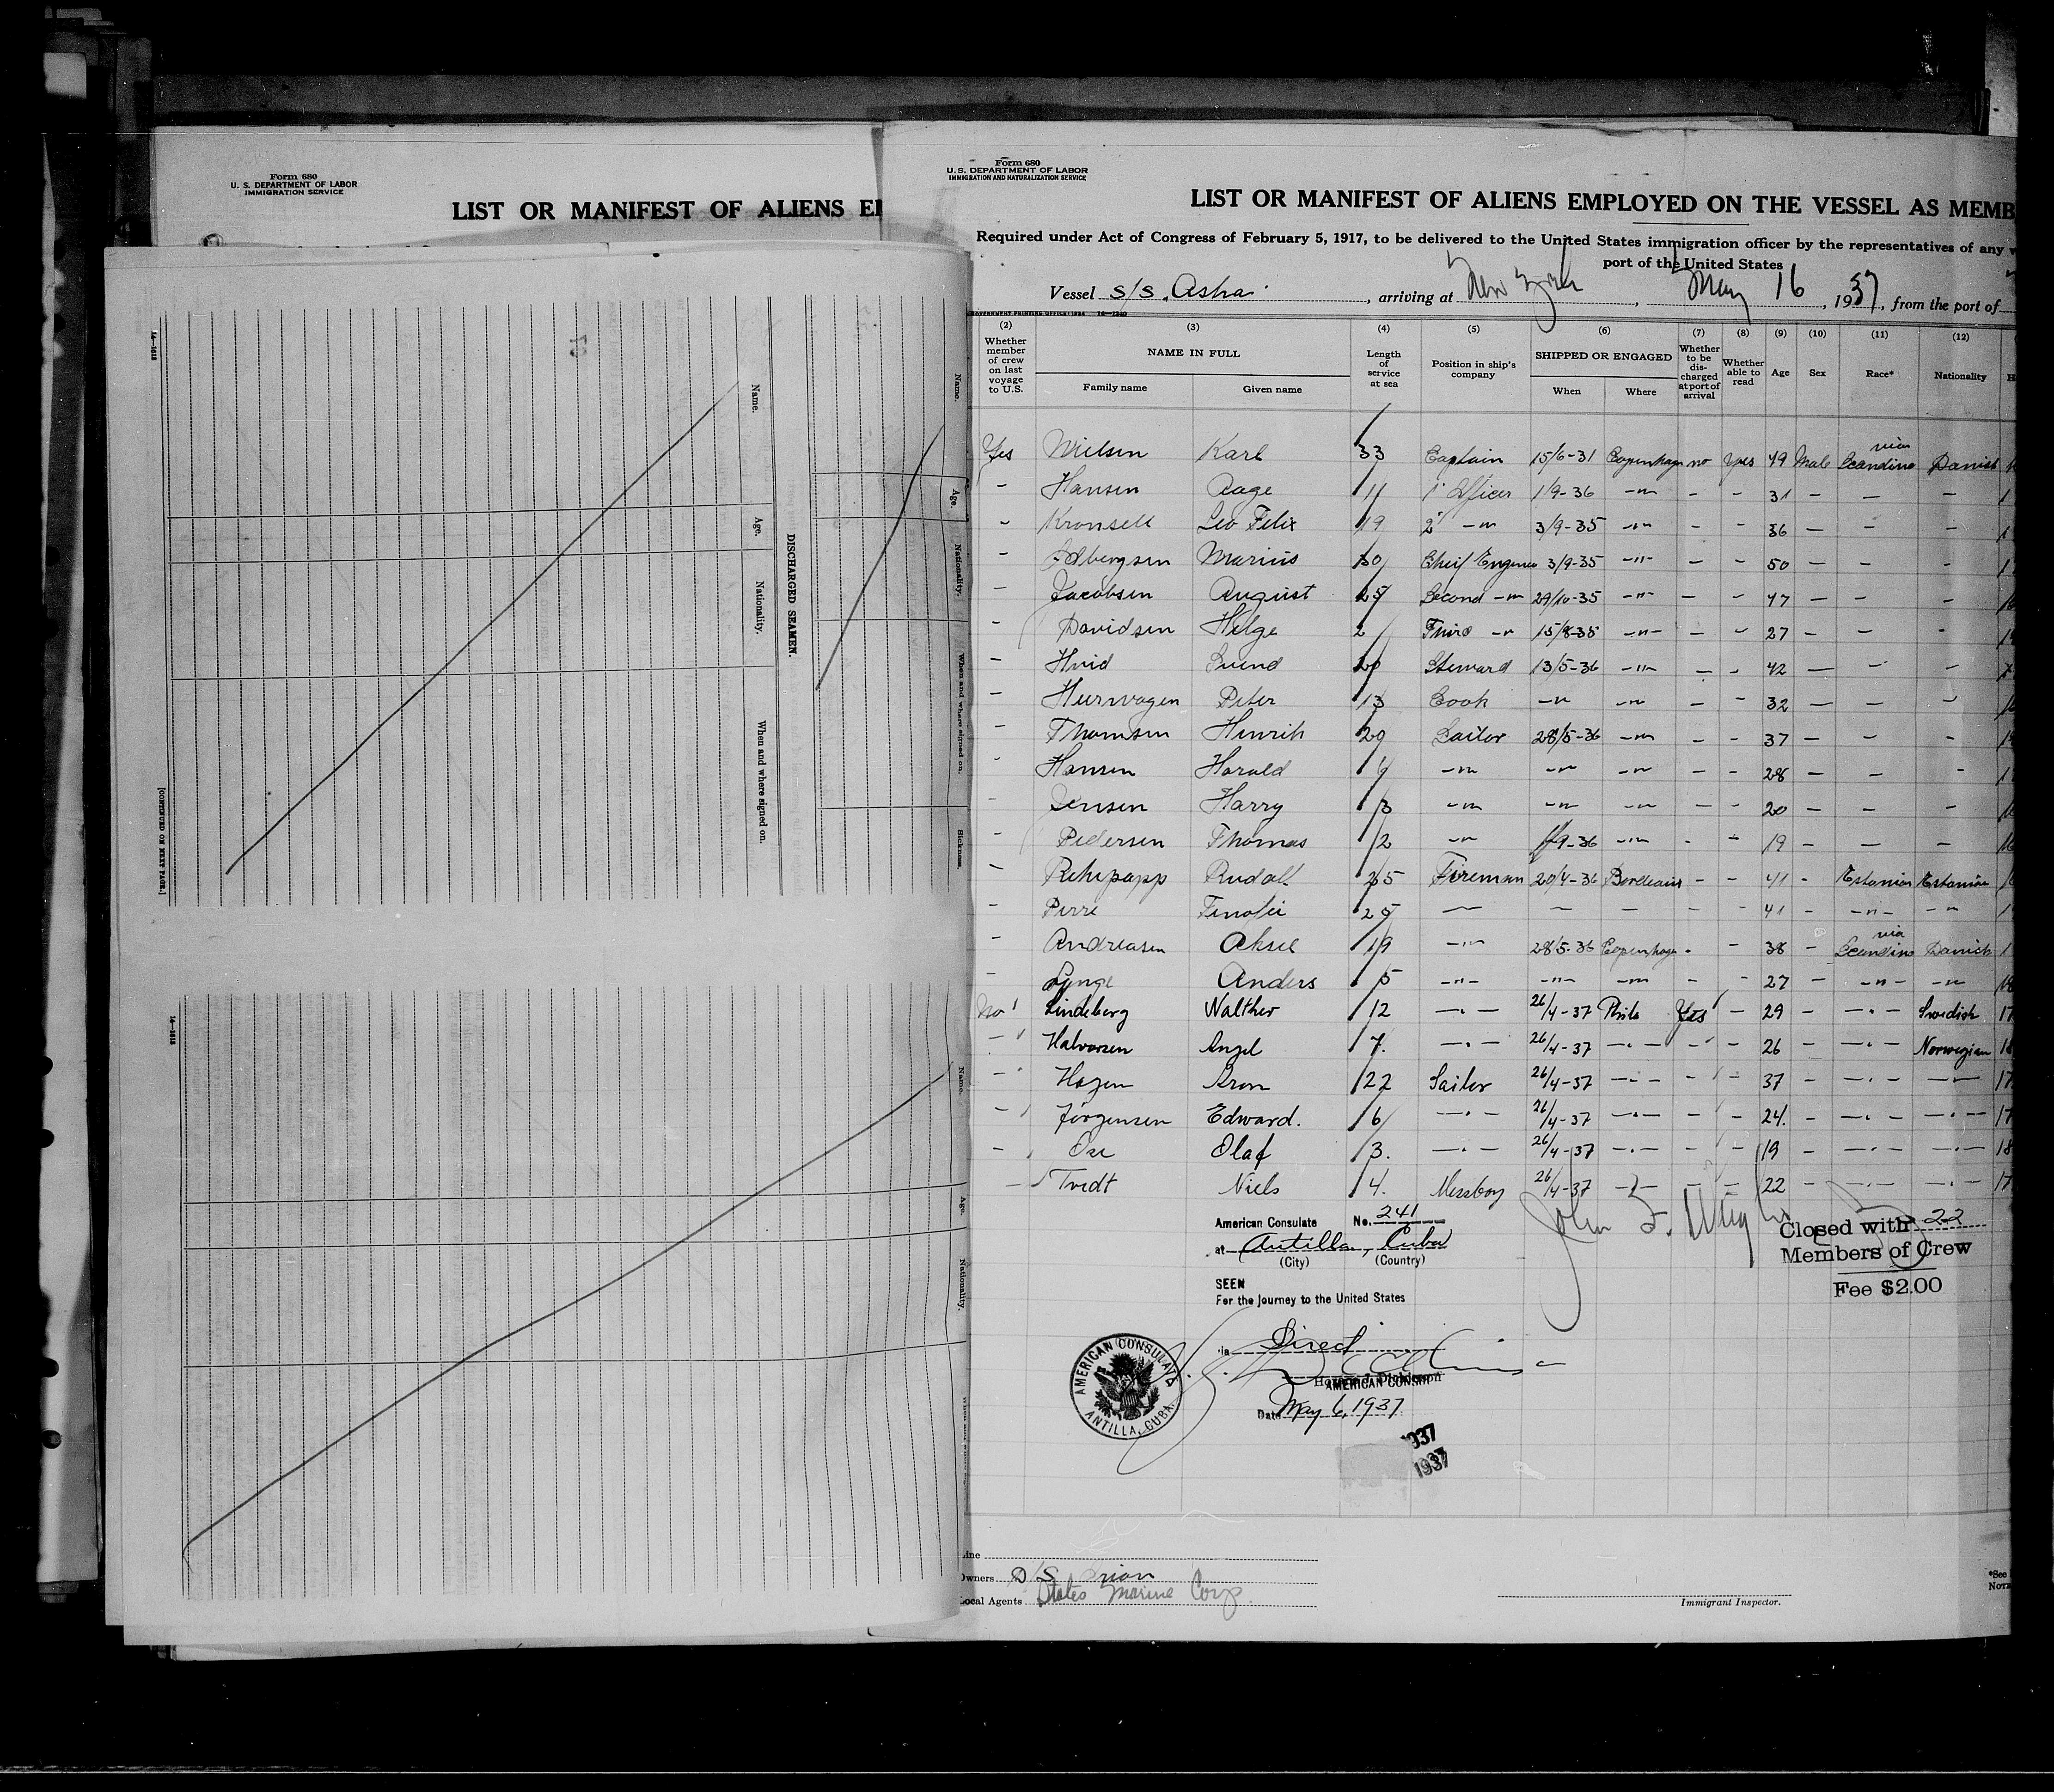 Form 680
U. S. DEPARTMENT OF LABOR
IMMIGRATION SERVICE
LIST OR MANIFEST OF ALIENS E
14—1518
Name.
Age.
Nationality.
When and where signed on.
DISCHARGED SEAMEN.
Name.
Age.
Nationality.
When and where signed on.
Sickness.
[CONTINUED ON NEXT PAGE.]
14—1518
Name.
Age.
Nationality.
Form 680
U. S. DEPARTMENT OF LABOR
IMMIGRATION AND NATURALIZATION SERVICE
LIST OR MANIFEST OF ALIENS EMPLOYED ON THE VESSEL AS MEMB
Required under Act of Congress of February 5, 1917, to be delivered to the United States immigration officer by the representatives of any
port of the United States
Vessel S/S. Asha, arriving at New York, May 16, 1937, from the port of
(2) (3) (4) (5) (6) (7) (8) (9) (10) (11) (12)
Whether member of crew on last voyage to U.S. NAME IN FULL Family name Given name Length of service at sea Position in ship's company SHIPPED OR ENGAGED When Where Whether to be discharged at port of arrival Whether able to read Age Sex Race* Nationality
Yes Nielsen Karl 33 Captain 15/6-31 Copenhagen no yes 49 Male Scandinavian Danish
– Hansen Aage 11 1' Officer 1/9-36 –"– – – 31 – – –
– Kronsell Leo Felix 19 2' –"– 3/9-35 –"– – – 36 – – –
– Marius 30 Cheif Engineer 3/9-35 –"– – – 50 – – –
– Jacobsen August 25 Second –"– 29/10-35 –"– – – 47 – – –
– Davidsen Helge 2 Third –"– 15/8-35 –"– – – 27 – – –
– Hvid Svend 20 Steward 13/5-36 –"– – – 42 – – –
– Heerwagen Peter 13 Cook –"– –"– – – 32 – – –
– Thomsen Henrik 20 Sailor 28/5-36 –"– – – 37 – – –
– Hansen Harald 9 –"– –"– –"– – – 28 – – –
– Jensen Harry 3 –"– –"– –"– – – 20 – – –
– Pedersen Thomas 2 –"– 1/9-36 –"– – – 19 – – –
– Rehepapp Rudolf 25 Fireman 20/4-36 Bordeaux – – 41 – Estonian Estonian
– Pirre 25 – – – – – 41 – –"– –"–
– Andreasen Aksel 19 –"– 28/5-36 Copenhagen – – 38 – Scandinavian Danish
– Lynge Anders 5 –"– –"– –"– – 27 – –"– –"–
No Lindeberg Walther 12 –"– 26/4-37 Phila Yes – 29 – –"– Swedish 17
– Halvorsen Angel 7. –"– 26/4-37 –"– – – 26 –"– Norwegian 18
– Hagen Aron 22 Sailor 26/4-37 –"– – – 37 – –"– –"– 17
– Jørgensen Edward. 6 –"– 26/4-37 –"– – – 24. – –"– –"– 17
– Ose Olaf 3. –"– 26/4-37 –"– – – 19 – –"– –"– 18
– Tvedt Niels 4. Messboy 26/4-37 –"– – – 22 – –"– –"– 17
American Consulate No. 241
at Antilla, Cuba
(City) (Country)
SEEN
For the journey to the United States
Direct
AMERICAN CONSUL
Date May 6, 1937
AMERICAN CONSULATE
ANTILLA, CUBA.
1937
1937
Closed with 22
Members of Crew
Fee $2.00
Line
Owners D/S Orion
Local Agents States Marine Corp.
Immigrant Inspector.
*See